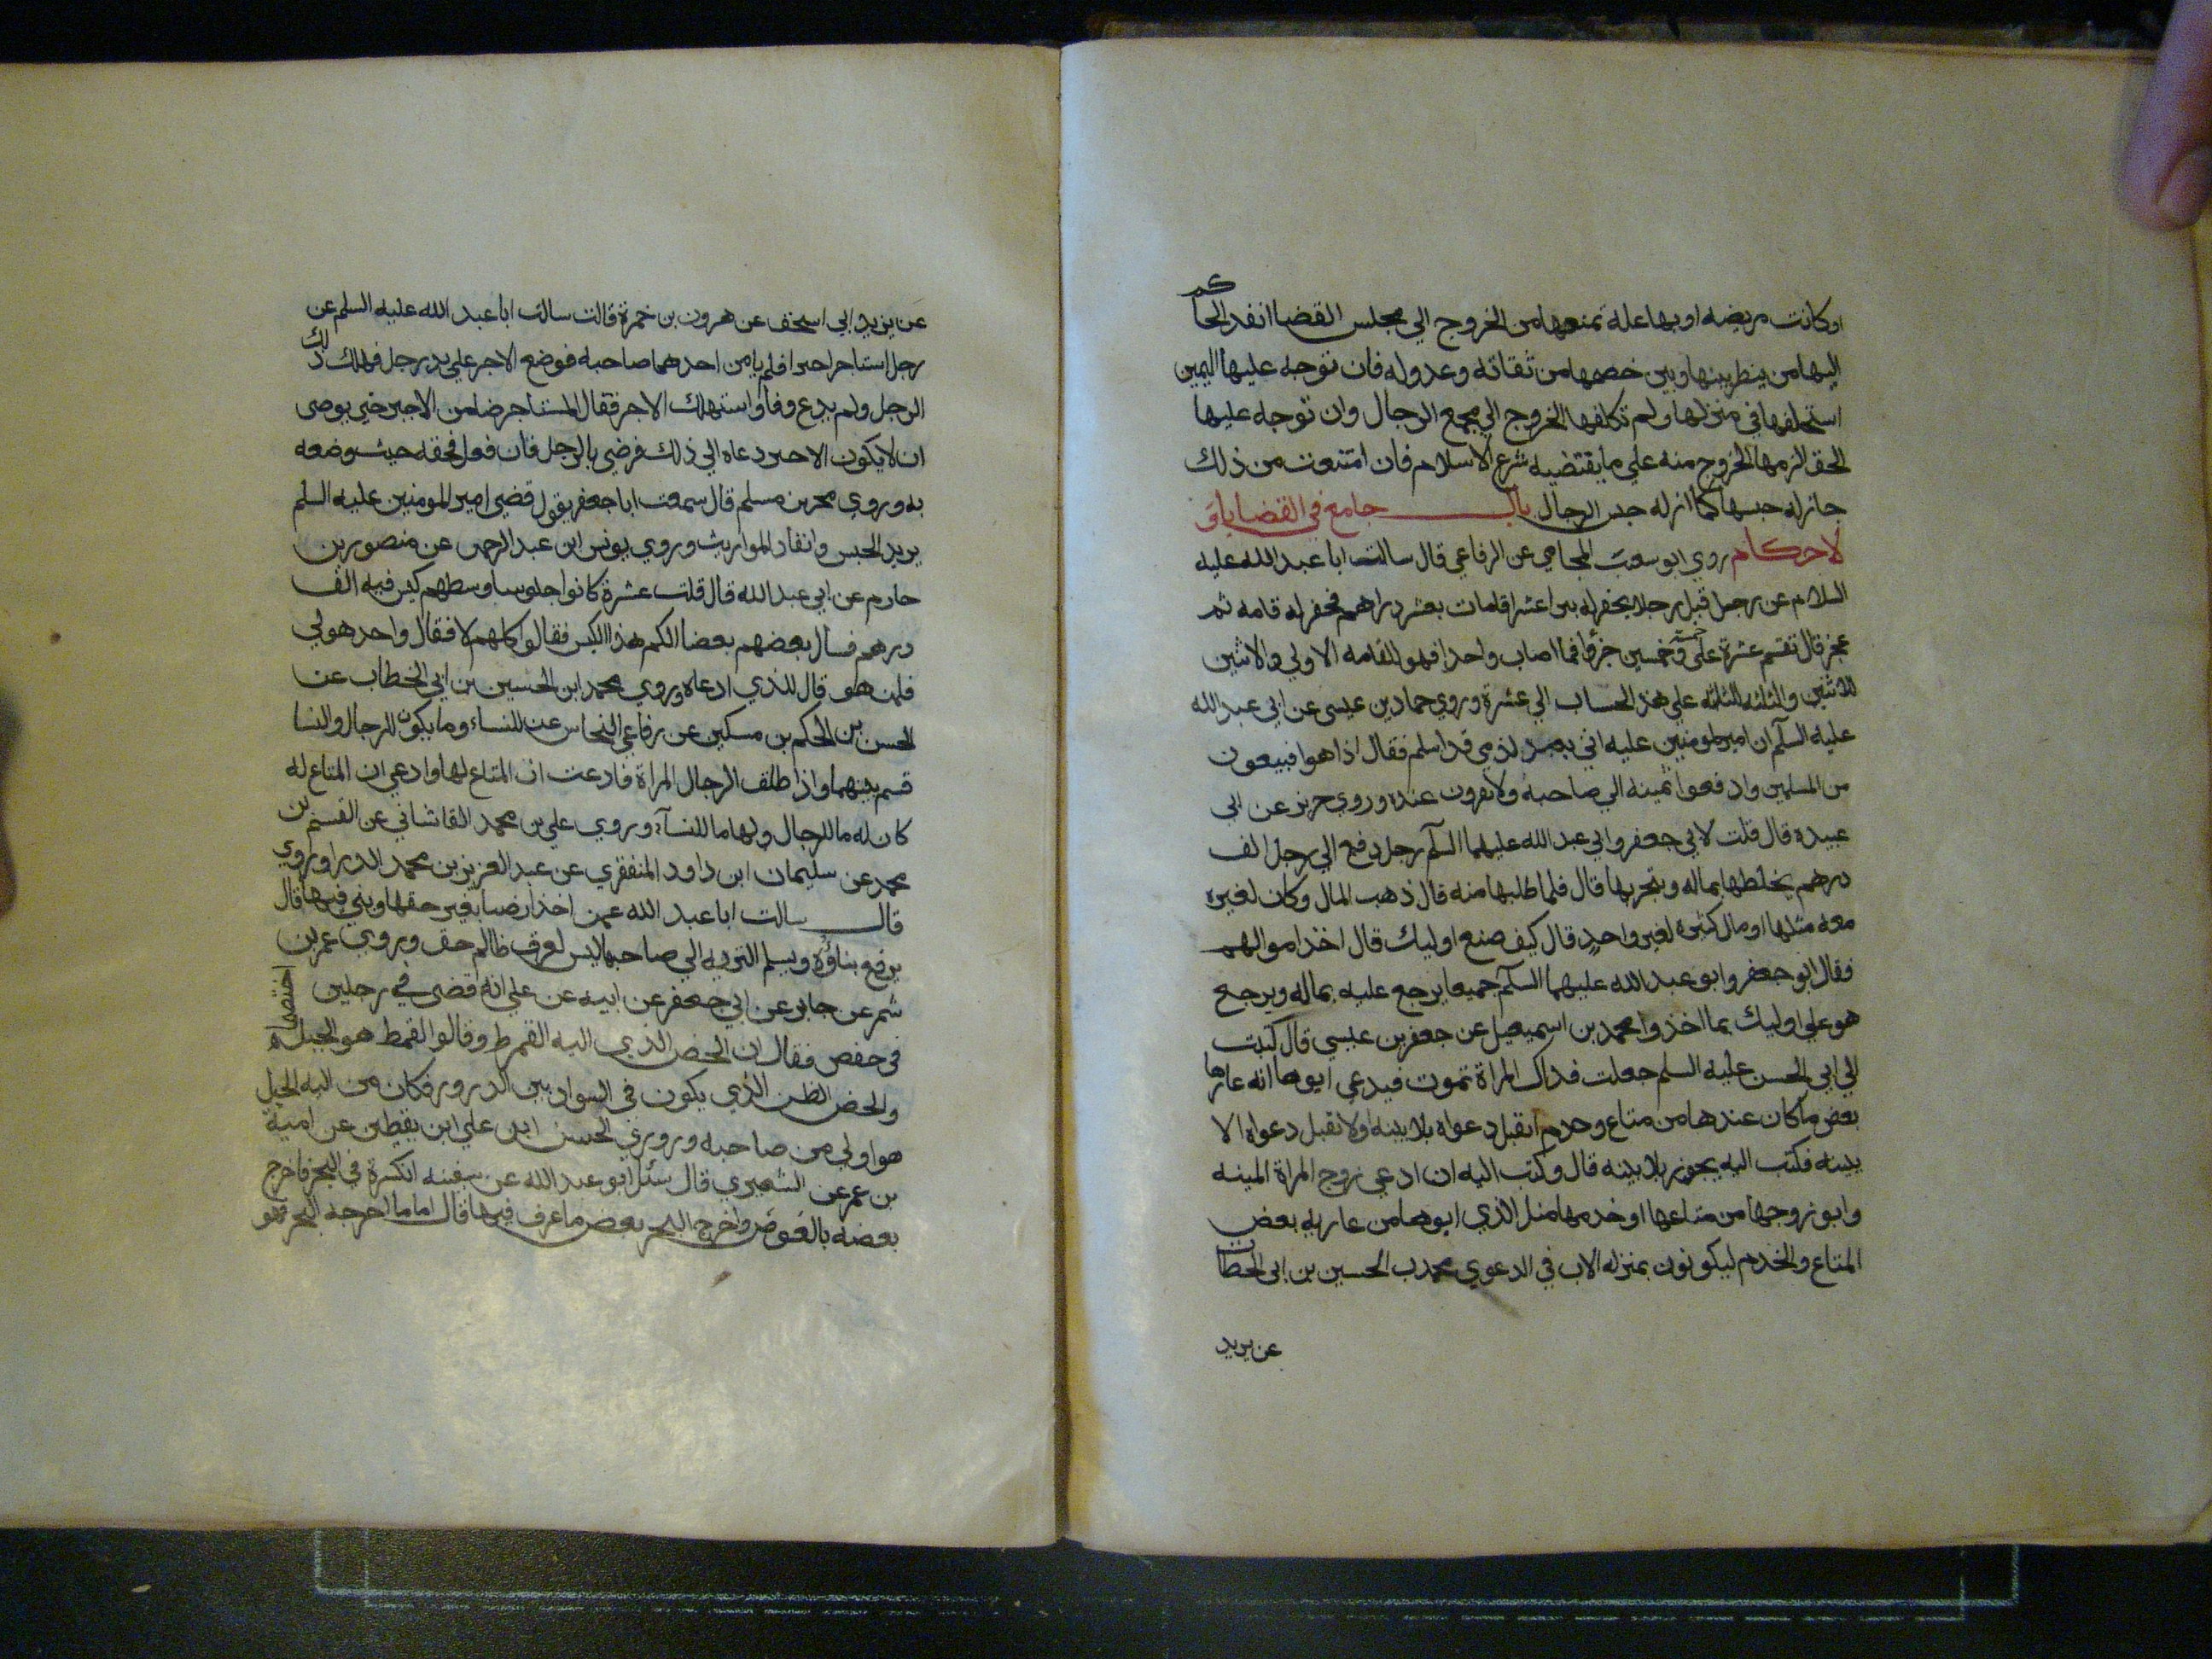 اوكانت مريضه اوبها علة تمنعها من الخروج الي مجلس القضا انفد الحاكم
اليها من ينظر بينها وبين خصمها من ثقاته وعدوله فان توجه عليها اليمين
استحلفها في منزلها ولم تكلفها الخروج الي مجمع الرجال وان توجه عليها
الحق الزمها الخروج منه علي ما يقتضيه شرع الاسلام فان امتنعت من ذلك
جاز له حبسها كما ان له حبس الرجال باب جامع في القضايا و
لاحكام روي ابو سعت المحامي عن الرفاعي قال سالت ابا عبد الله عليه
السلام عن رجل قبل رجلا يحفر له بيرا عشر اقامات بعشر دراهم فحفر له قامه ثم
عجز قال تقسم عشرة علي خمسة وخمسين جزؤا فما اصاب واحدا فهو للقامه الاولي والاثنين
للاثنين والثلثه للثلثه علي هذا الحساب الي عشرة وروي حماد بن عيسى عن ابي عبد الله
عليه السلم ان امير المومنين عليه اتي بعبد لذمي قد اسلم فقال اذاهبوا فبيعون
من المسلمين وادفعوا ثمينه الي صاحبه ولا تقرون عنده وروي حريز عن ابي
عبيده قال قلت لابي جعفر وابي عبد الله عليهما السلم رجل دفع الي رجل الف
درهم يخلطها بماله ويتجر بها قال فلما طلبها منه قال ذهب المال وكان لغيره
معه مثلها او مال كثيره لغير واحد قال كيف صنع اوليك قال اخذ اموالهم
فقال ابو جعفر وابو عبد الله عليهما السلم جميعا يرجع عليه بماله ويرجع
هو علي اوليك بما اخذوا محمد بن اسمعيل عن جعفر بن عيسي قال كتبت
الي ابي الحسن عليه السلم جعلت فداك المراة تموت فيدعي ابوها انه عارها
بعض ما كان عندها من متاع وخدم اتقبل دعواه بلا بينه اولا تقبل دعواه الا
ببينه فكتب اليه يجوز بلا بينه قال وكتب اليه ان ادعي زوج المراة الميته
وابو زوجها من متاعها او خدمها مثل الذي ابوها من عاريه بعض
المتاع والخدم ليكونون بمنزله الاب في الدعوي محمد ب الحسين بن ابي الخطاب
عن يزيد
عن يزيد ابي اسحق عن هرون بن حمزة قالت سالت ابا عبد الله عليه السلم عن
رجل استاجر اجيرا فلم يامن احدهما صاحبه فوضع الاجر علي يد رجل فهلك ذلك
الرجل ولم يدع وفا واستهلك الاجر فقال المستاجر ضامن الاجير حتي يوصى
ان لا يكون الاجير دعاه الي ذلك فرضي بالرجل فان فعل فحقه حيث وضعه
به وروي محمد بن مسلم قال سمعت ابا جعفر يقول قضي امير المومنين عليه السلم
يريد الحبس وانفاد المواريث وروي يونس ابن عبد الرحمن عن منصور بن
حازم عن ابي عبد الله قال قلت عشرة كانوا جلوسا وسطهم كيس فيه الف
درهم فسال بعضهم بعضا الكم هذا الكيس فقالوا كلهم لا فقال واحد هو لي
فلمن هو قال للذي ادعاه وروي محمد ابن الحسين بن ابي الخطاب عن
الحسن بن الحكم بن مسكين عن رفاعي النحاس عن للنساء وما يكون للرجال والنسا
قسم بينهما واذا طلق الرجال المراة فادعت ان المتاع لها وادعي ان المتاع له
كان له ما للرجال ولها ما للنسآء وروي علي بن محمد القاشاني عن القسم بن
محمد عن سليمان ابن داود المنقري عن عبد العزيز بن محمد الدراوروي
قال سالت ابا عبد الله عمن اخذ ارضا بغير حقها وبني فيها قال
يرفع بناؤه ويسلم التربه الي صاحبها ليس لعرق ظالم حق وروي عمر بن
شمر عن جابر عن ابي جعفر عن ابيه عن علي انه قضى في رجلين اختصما
في حفص فقال ان الخص الذي اليه القمرط وقالوا القمط هو الحبل
والخص الطين الذي يكون في السواد بين الدرور فكان من اليه الحبل
هو اولي من صاحبه وروي الحسن ابن علي ابن يقطين عن امية
بن عمر عن الشعيري قال سئل ابو عبد الله عن سفينه انكسرة في البحر فاخرج
بعضه بالغوص واخرج البحر بعض ما غرف فيها قال اما ما اخرجه البحر فهو